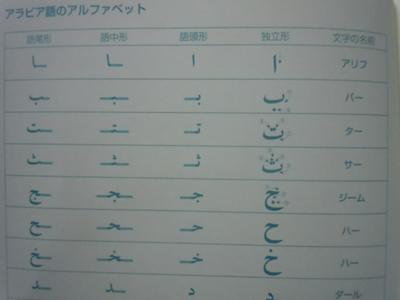 アラビア語のアルファベット
語尾形 語中形 語頭形 独立形 文字の名前
ـا ـا ا ا アリフ
ـب ـبـ بـ ب バー
ـت ـتـ تـ ت ター
ـث ـثـ ثـ ث サー
ـج ـجـ جـ ج ジーム
ـح ـحـ حـ ح ハー
ـخ ـخـ خـ خ ハー
ـد ـد د د ダール